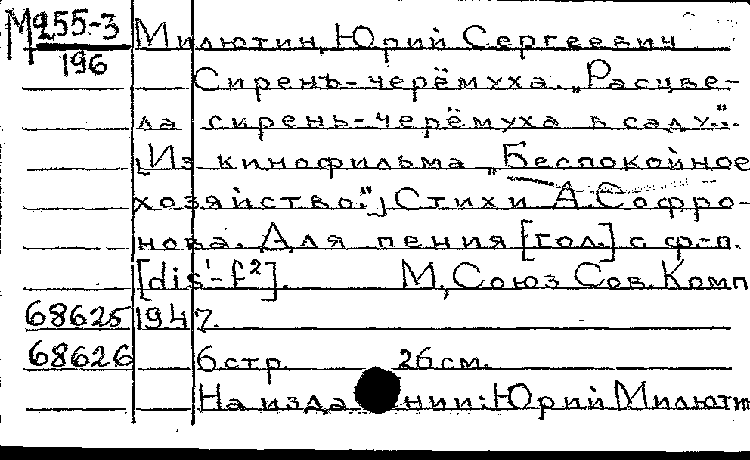 М255-3 Милютин, Юрий Сергеевич
196 Сирень-черёмуха. „Расцве-
ла сирень-черёмуха в саду..."
[Из кинофильма „Беспокойное
хозяйство".] Стихи А. Софро-
нова. Для пения [гол.] с ф.-п.
[dis¹-f²]. М., Союз Сов. Комп
68625 1947.
68626 6 стр. 26 см.
На издании: Юрий Милют